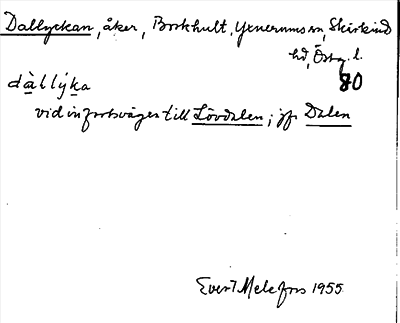 Dallyckan, åker, Borkhult, Yxnerums sn, Skärkind
hd, Östg. l.
80
dàllýka
vid infartsvägen till Lövdalen; jfr Dalen
Evert Melefors 1955